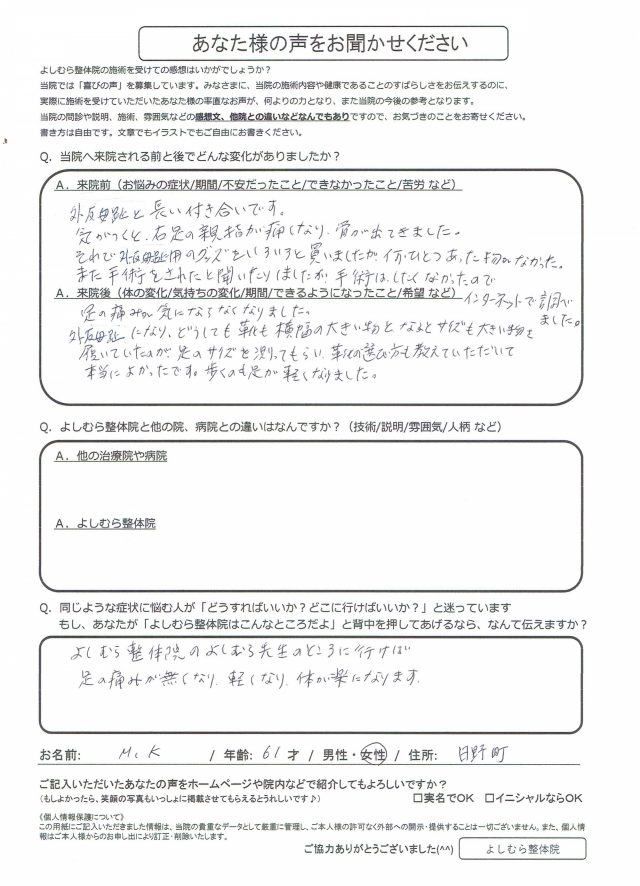 あなた様の声をお聞かせください
よしむら整体院の施術を受けての感想はいかがでしょうか？
当院では「喜びの声」を募集しています。みなさまに、当院の施術内容や健康であることのすばらしさをお伝えするのに、
実際に施術を受けていただいたあなた様の率直なお声が、何よりの力となり、また当院の今後の参考となります。
当院の問診や説明、施術、雰囲気などの感想文、他院との違いなどなんでもありですので、お気づきのことをお寄せください。
書き方は自由です。文章でもイラストでもご自由にお書きください。
Q．当院へ来院される前と後でどんな変化がありましたか？
A．来院前（お悩みの症状/期間/不安だったこと/できなかったこと/苦労 など）
外反母趾と長い付き合いです。
気がつくと、右足の親指が痛くなり、骨が出てきました。
それで外反母趾用のグッズをいろいろと買いましたが何ひとつあった物がなかった。
また手術をされたと聞いたりしましたが、手術はしたくなかったので
インターネットで調べました。
A．来院後（体の変化/気持ちの変化/期間/できるようになったこと/希望 など）
足の痛みが気にならなくなりました。
外反母趾になり、どうしても靴も横幅の大きい物となるとサイズも大きい物を
履いていたのが、足のサイズを測ってもらい、靴の選び方も教えていただいて
本当によかったです。歩くのも足が軽くなりました。
Q．よしむら整体院と他の院、病院との違いはなんですか？（技術/説明/雰囲気/人柄 など）
A．他の治療院や病院
A．よしむら整体院
Q．同じような症状に悩む人が「どうすればいいか？どこに行けばいいか？」と迷っています
もし、あなたが「よしむら整体院はこんなところだよ」と背中を押してあげるなら、なんて伝えますか？
よしむら整体院のよしむら先生のところに行けば
足の痛みが無くなり、軽くなり、体が楽になります。
お名前： M.K / 年齢：61才 / 男性・女性 / 住所： 日野町
ご記入いただいたあなたの声をホームページや院内などで紹介してもよろしいですか？
（もしよかったら、笑顔の写真もいっしょに掲載させてもらえるとうれしいです♪） □実名でOK □イニシャルならOK
《個人情報保護について》
この用紙にご記入いただきました情報は、当院の貴重なデータとして厳重に管理し、ご本人様の許可なく外部への開示・提供することは一切ございません。また、個人情
報はご本人様からのお申し出により訂正・削除いたします。
ご協力ありがとうございました(^^) よしむら整体院